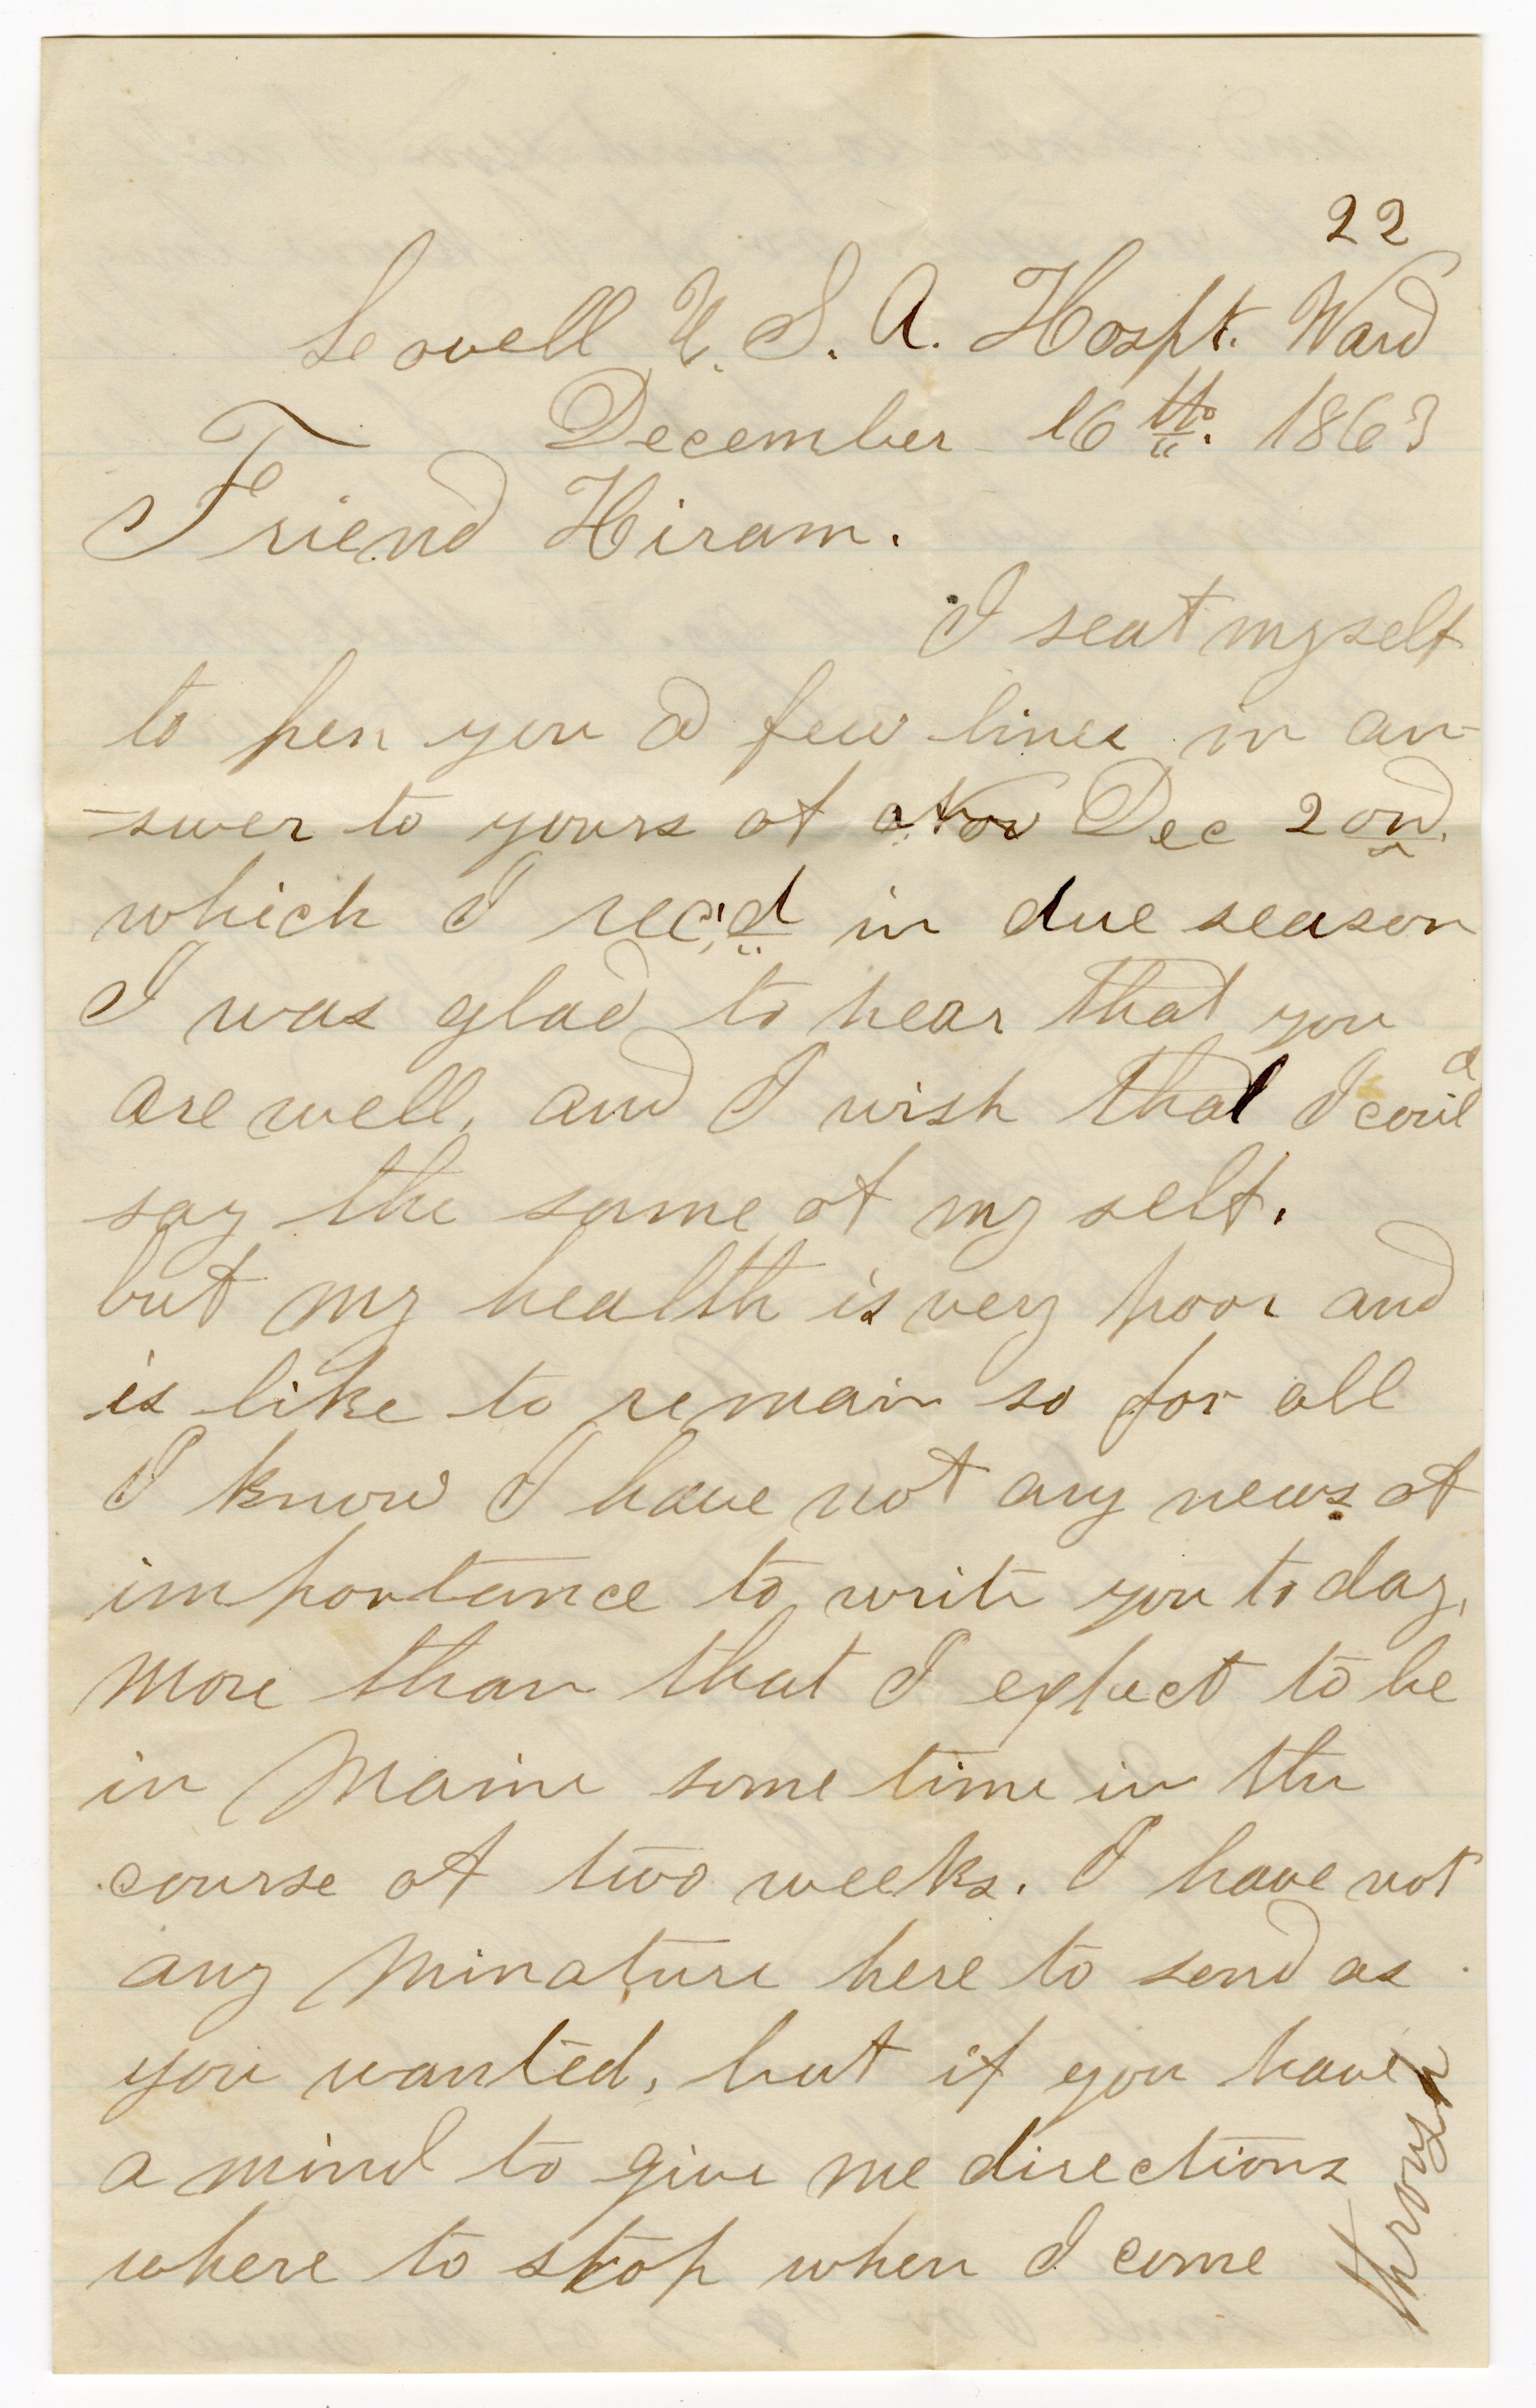 22
Lovell U. S. A. Hospt. Ward
December 16th. 1863
Friend Hiram.
I seat myself
to pen you a few lines in an-
-swer to yours of Nov Dec 2ond.
which I rec'd in due season
I was glad to hear that you
are well, and I wish that I could
say the same of my self.
but my health is very poor and
is like to remain so for all
I know I have not any news of
importance to write you to day,
more than that I expect to be
in Maine some time in the
course of two weeks. I have not
any Minature here to send as
you wanted, but if you have
a mind to give me directions
where to stop when I come
through